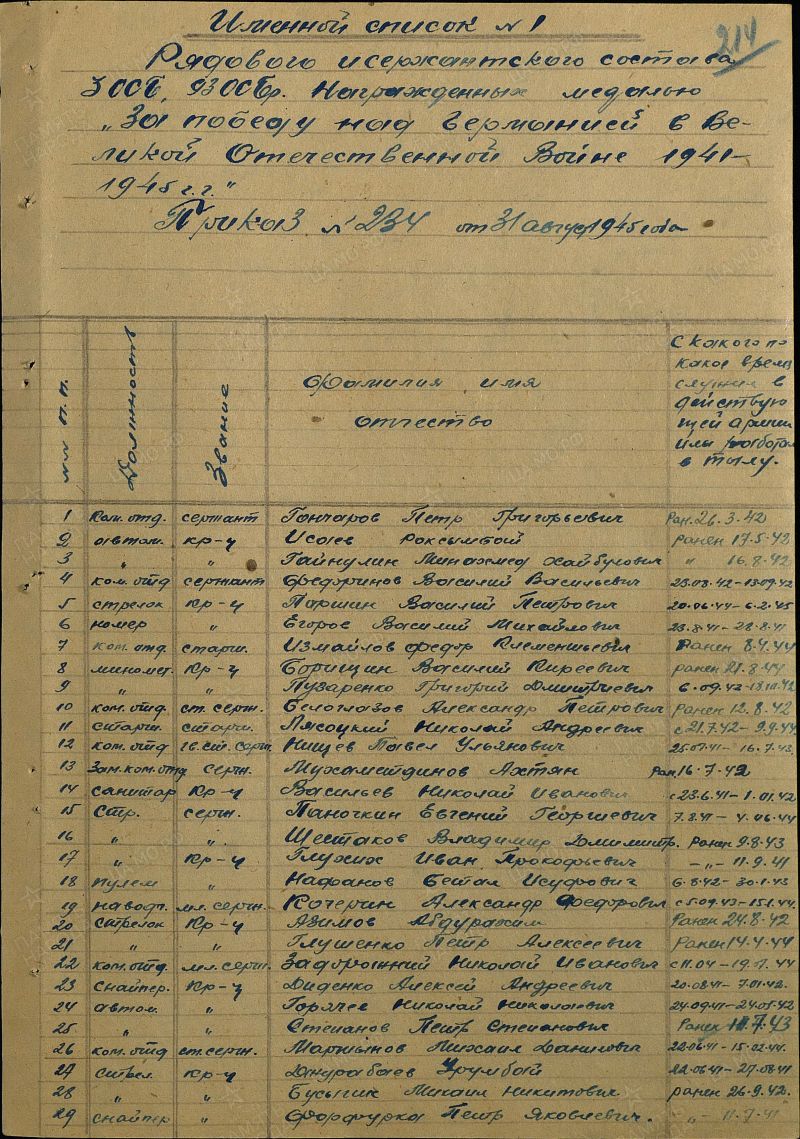 Именной список № 1
214
Рядового и сержантского состава
3 ОСБ, 93 ОСБр. Награжденных медалью
„За победу над Германией в Ве-
ликой Отечественной Войне 1941-
1945 г.г."
Приказ № 234 от 31 август 1945 года
№№ п.п. Должность Звание Фамилия имя отчество С какого по какое время служил в действую щей армии или работал в тылу.
1 Ком. отд. сержант Гончаров Петр Григорьевич Ран. 26.3.42
2 автом. кр-ц Исаев Роксымбай Ранен 17.5.42
3 „ „ Гайнулин Минахмед Хайбулович „ 16.8.42
4 ком. отд сержант Федоринов Василий Васильевич 23.08.42-13.09.42
5 стрелок Кр-ц Паршин Василий Петрович 20.06.44-6.2.45
6 номер „ Егоров Василий Михайлович 23.8.41-28.8.41
7 ком. отд. старш. Измайлов Федор Клементьевич Ранен 8.4.44
8 миномет. Кр-ц Борищин Василий Киреевич ранен 21.8.44
9 „ „ Пузаренко Григорий Дмитриевич 6.09.42-18.10.42
10 ком. отд ст. серж. Белоглазов Александр Петрович Ранен 12.8.42
11 старш. старш. Лясоцкий Николай Андреевич с 21.7.42-9.9.44
12 ком. отд гв. ст. серж. Нищев Павел Ульянович 25.07.41-16.7.43
13 Зам. ком. отд серж. Мухаметдинов Ахтян Ран 16.7.42
14 санитар Кр-ц Васильев Николай Иванович с 23.6.41-1.01.42
15 Стр. серж. Паночкин Евгений Георгиевич 7.8.41-4.06.44
16 „ „ Шестаков Владимир Дмитр. Ранен 9.8.43
17 „ Кр-ц Глухих Иван Прокофьевич -„- 11.9.41
18 пулем „ Нафанов Бетал Исуфович 6.8.42-30.1.43
19 наводч. мл. серж. Кочергин Александр Федорович с 5.09.43-15.1.44.
20 стрелок Кр-ц Азимов Абдурахим Ранен 24.8.42
21 „ „ Глушенко Петр Алексеевич Ранен 14.4.44
22 ком. отд. мл. серж. Задорожний Николай Иванович с 11.04-19.7.44
23 снайпер. Кр-ц Диденко Алексей Андреевич 20.08.41-7.01.42.
24 автом. „ Горячев Николай Николаевич 24.09.41-24.05.42
25 „ „ Степанов Петр Степанович Ранен 11.7.43
26 ком. отд ст. серж. Мартынов Михаил Данилович 22.06.41-15.02.44.
27 стрел. кр-ц Джурабаев Урумбай 22.06.41-27.08.41
28 „ „ Бусыгик Михаил Никитович ранен 26.9.42.
29 снайпер „ Форфурка Петр Яковлевич. „- 11.7.41